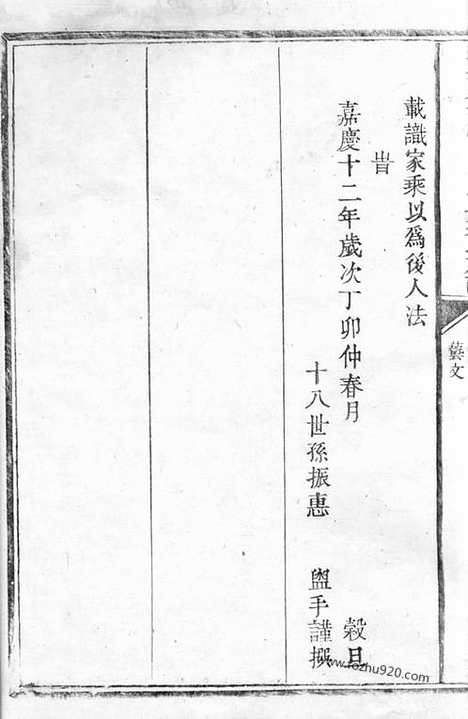 載識家乘以為後人法
旹
嘉慶十二年歲次丁卯仲春月 穀旦
十八世孫振惠 盥手謹撰
藝文
www.fozhu920.com